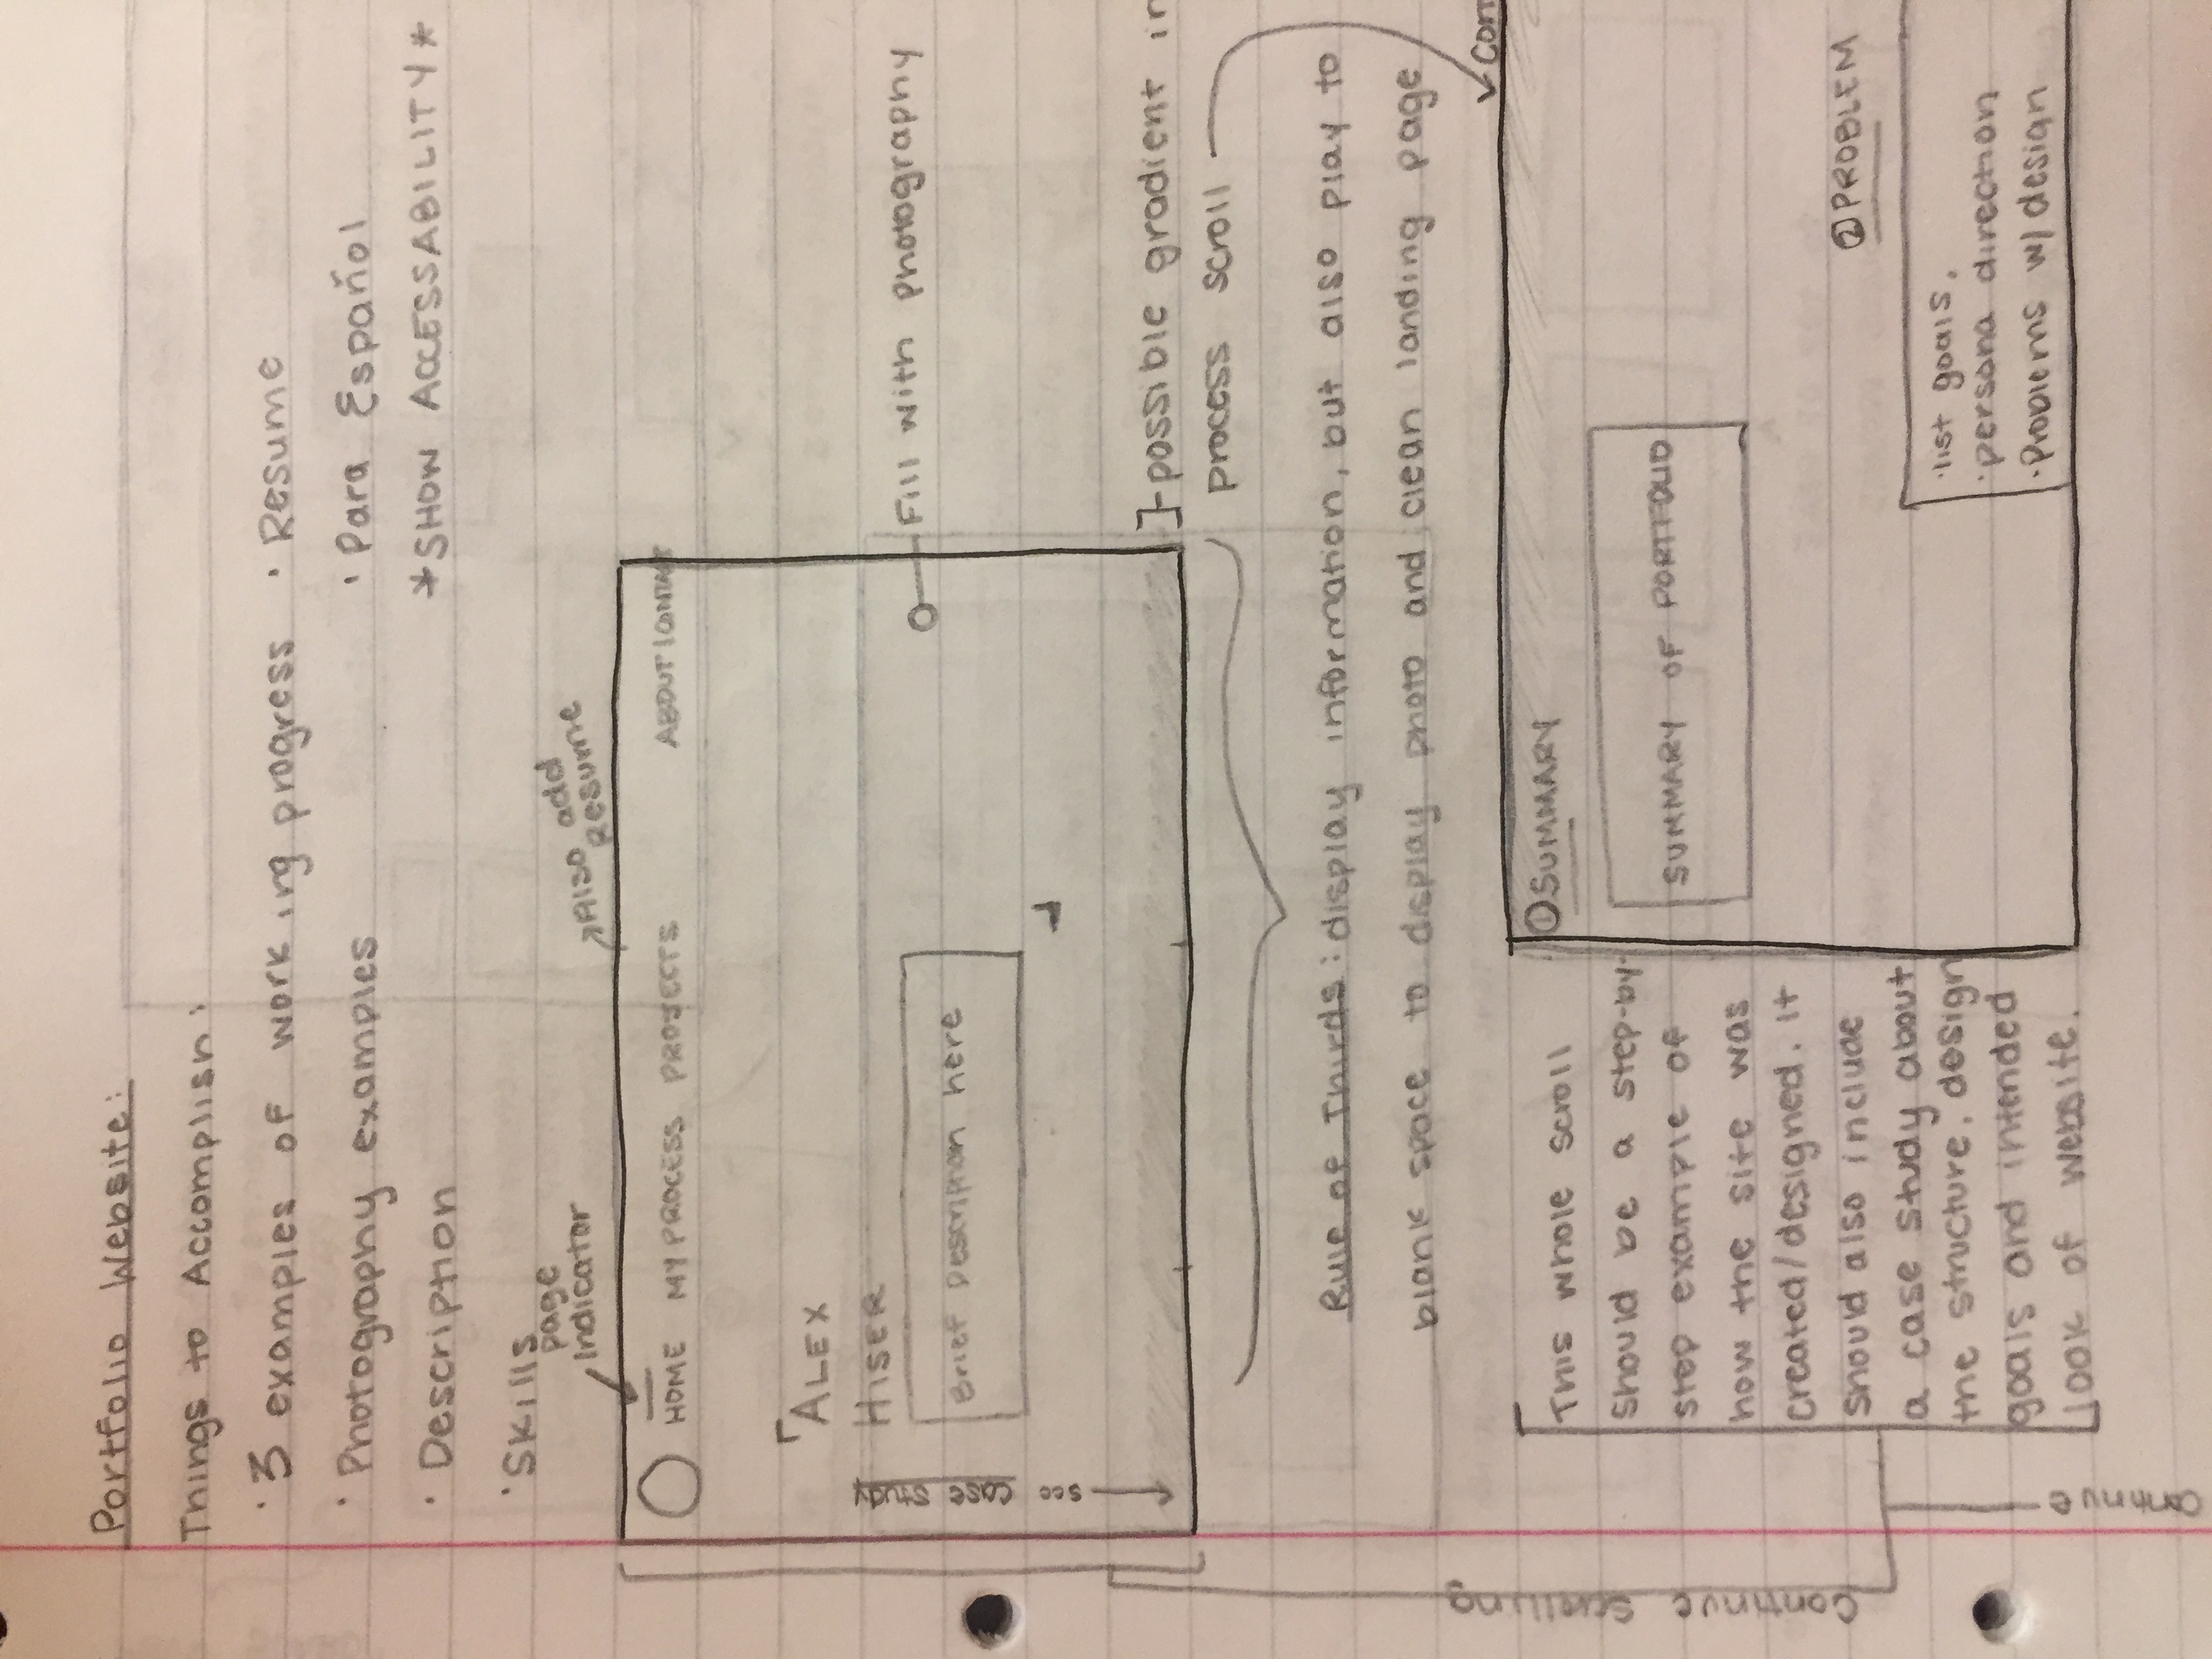 Portfolio Website:
Things to Accomplish:
· 3 examples of working progress
· Photography examples
· Description
· Skills
· Resume
· Para Español
*SHOW ACCESSABILITY*
page
Indicator
Also add
Resume
HOME MY PROCESS PROJECTS ABOUT/CONTACT
ALEX
HISER
Brief Description here
see Case Study
Fill with photography
possible gradient in
process scroll
Rule of Thirds: display information, but also play to
blank space to display photo and clean landing page
Continue
This whole scroll
should be a step-by-
step example of
how the site was
created/designed. It
should also include
a case study about
the structure, design
goals and intended
look of website.
① SUMMARY
SUMMARY OF PORTFOLIO
② PROBLEM
· list goals,
· persona direction
· Problems w/ design